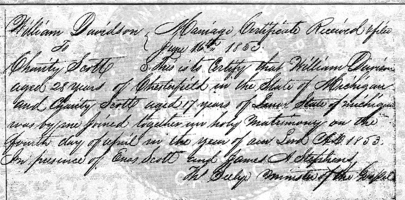 William Davidson { Marriage Certificate Received after
To June 16th 1853.
Charity Scott This is to Certify that William Davison
aged 28 years of Chesterfield in the State of Michigan
and Charity Scott aged 17 years of Lenox State of Michigan
was by me joined together in holy matrimony on the
fourth day of april in the year of our Lord 1853.
In presence of Enos Scott and James A Stephens
minister of the Gospel